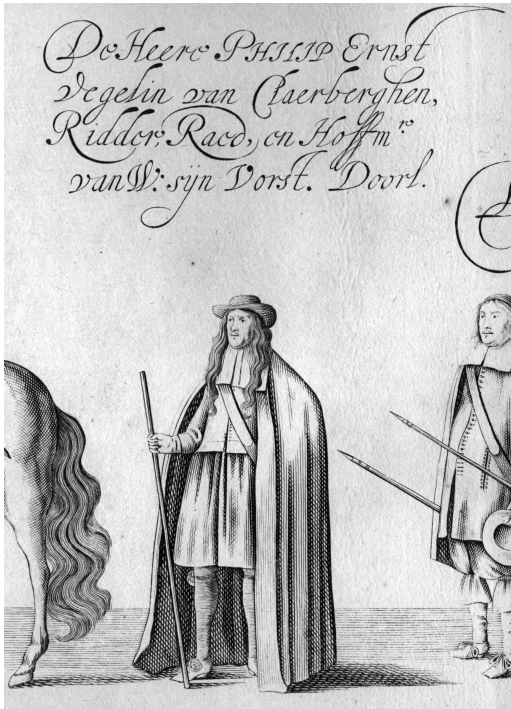 De Heere PHILIP Ernst
Vegelin van Claerberghen,
Ridder, Raed, en Hoffmr.
van W: sijn Vorst. Doorl.